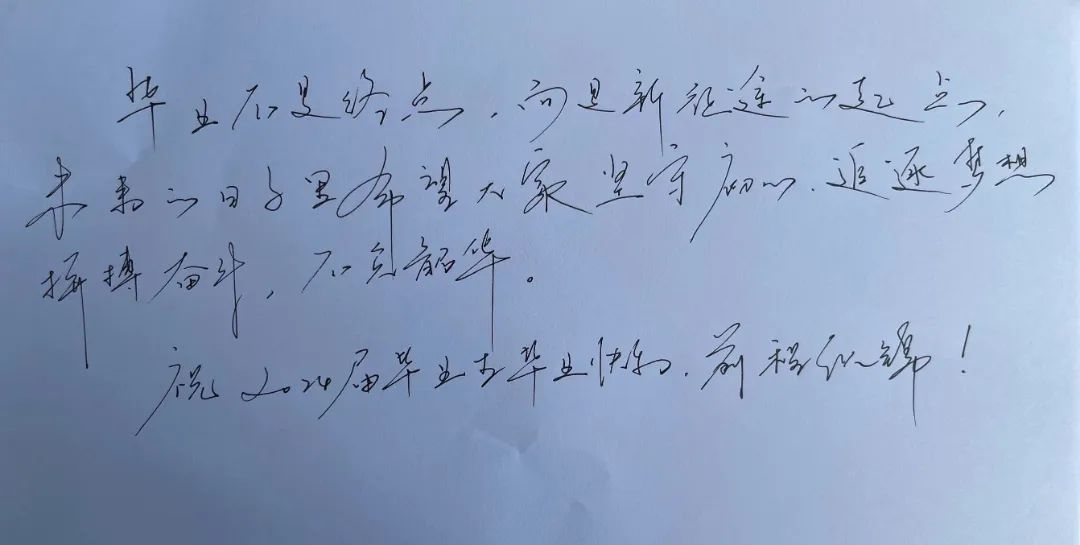 毕业不是终点,而是新征途的起点,
未来的日子里希望大家坚守初心、追逐梦想
拼搏奋斗,不负韶华。
祝2024届毕业生毕业快乐,前程似锦!